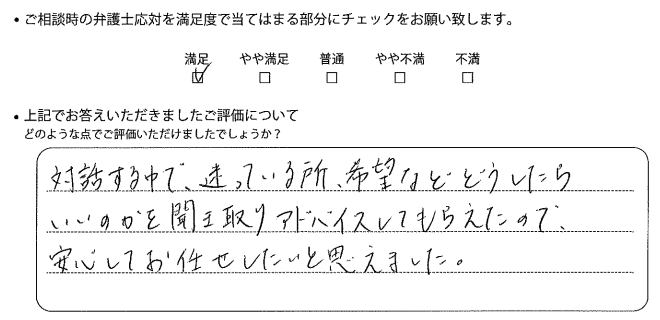 • ご相談時の弁護士応対を満足度で当てはまる部分にチェックをお願い致します。
満足 やや満足 普通 やや不満 不満
☑ □ □ □ □
• 上記でお答えいただきましたご評価について
どのような点でご評価いただけましたでしょうか？
対話する中で、迷っている所、希望などどうしたら
いいのかを聞き取りアドバイスしてもらえたので、
安心してお任せしたいと思えました。